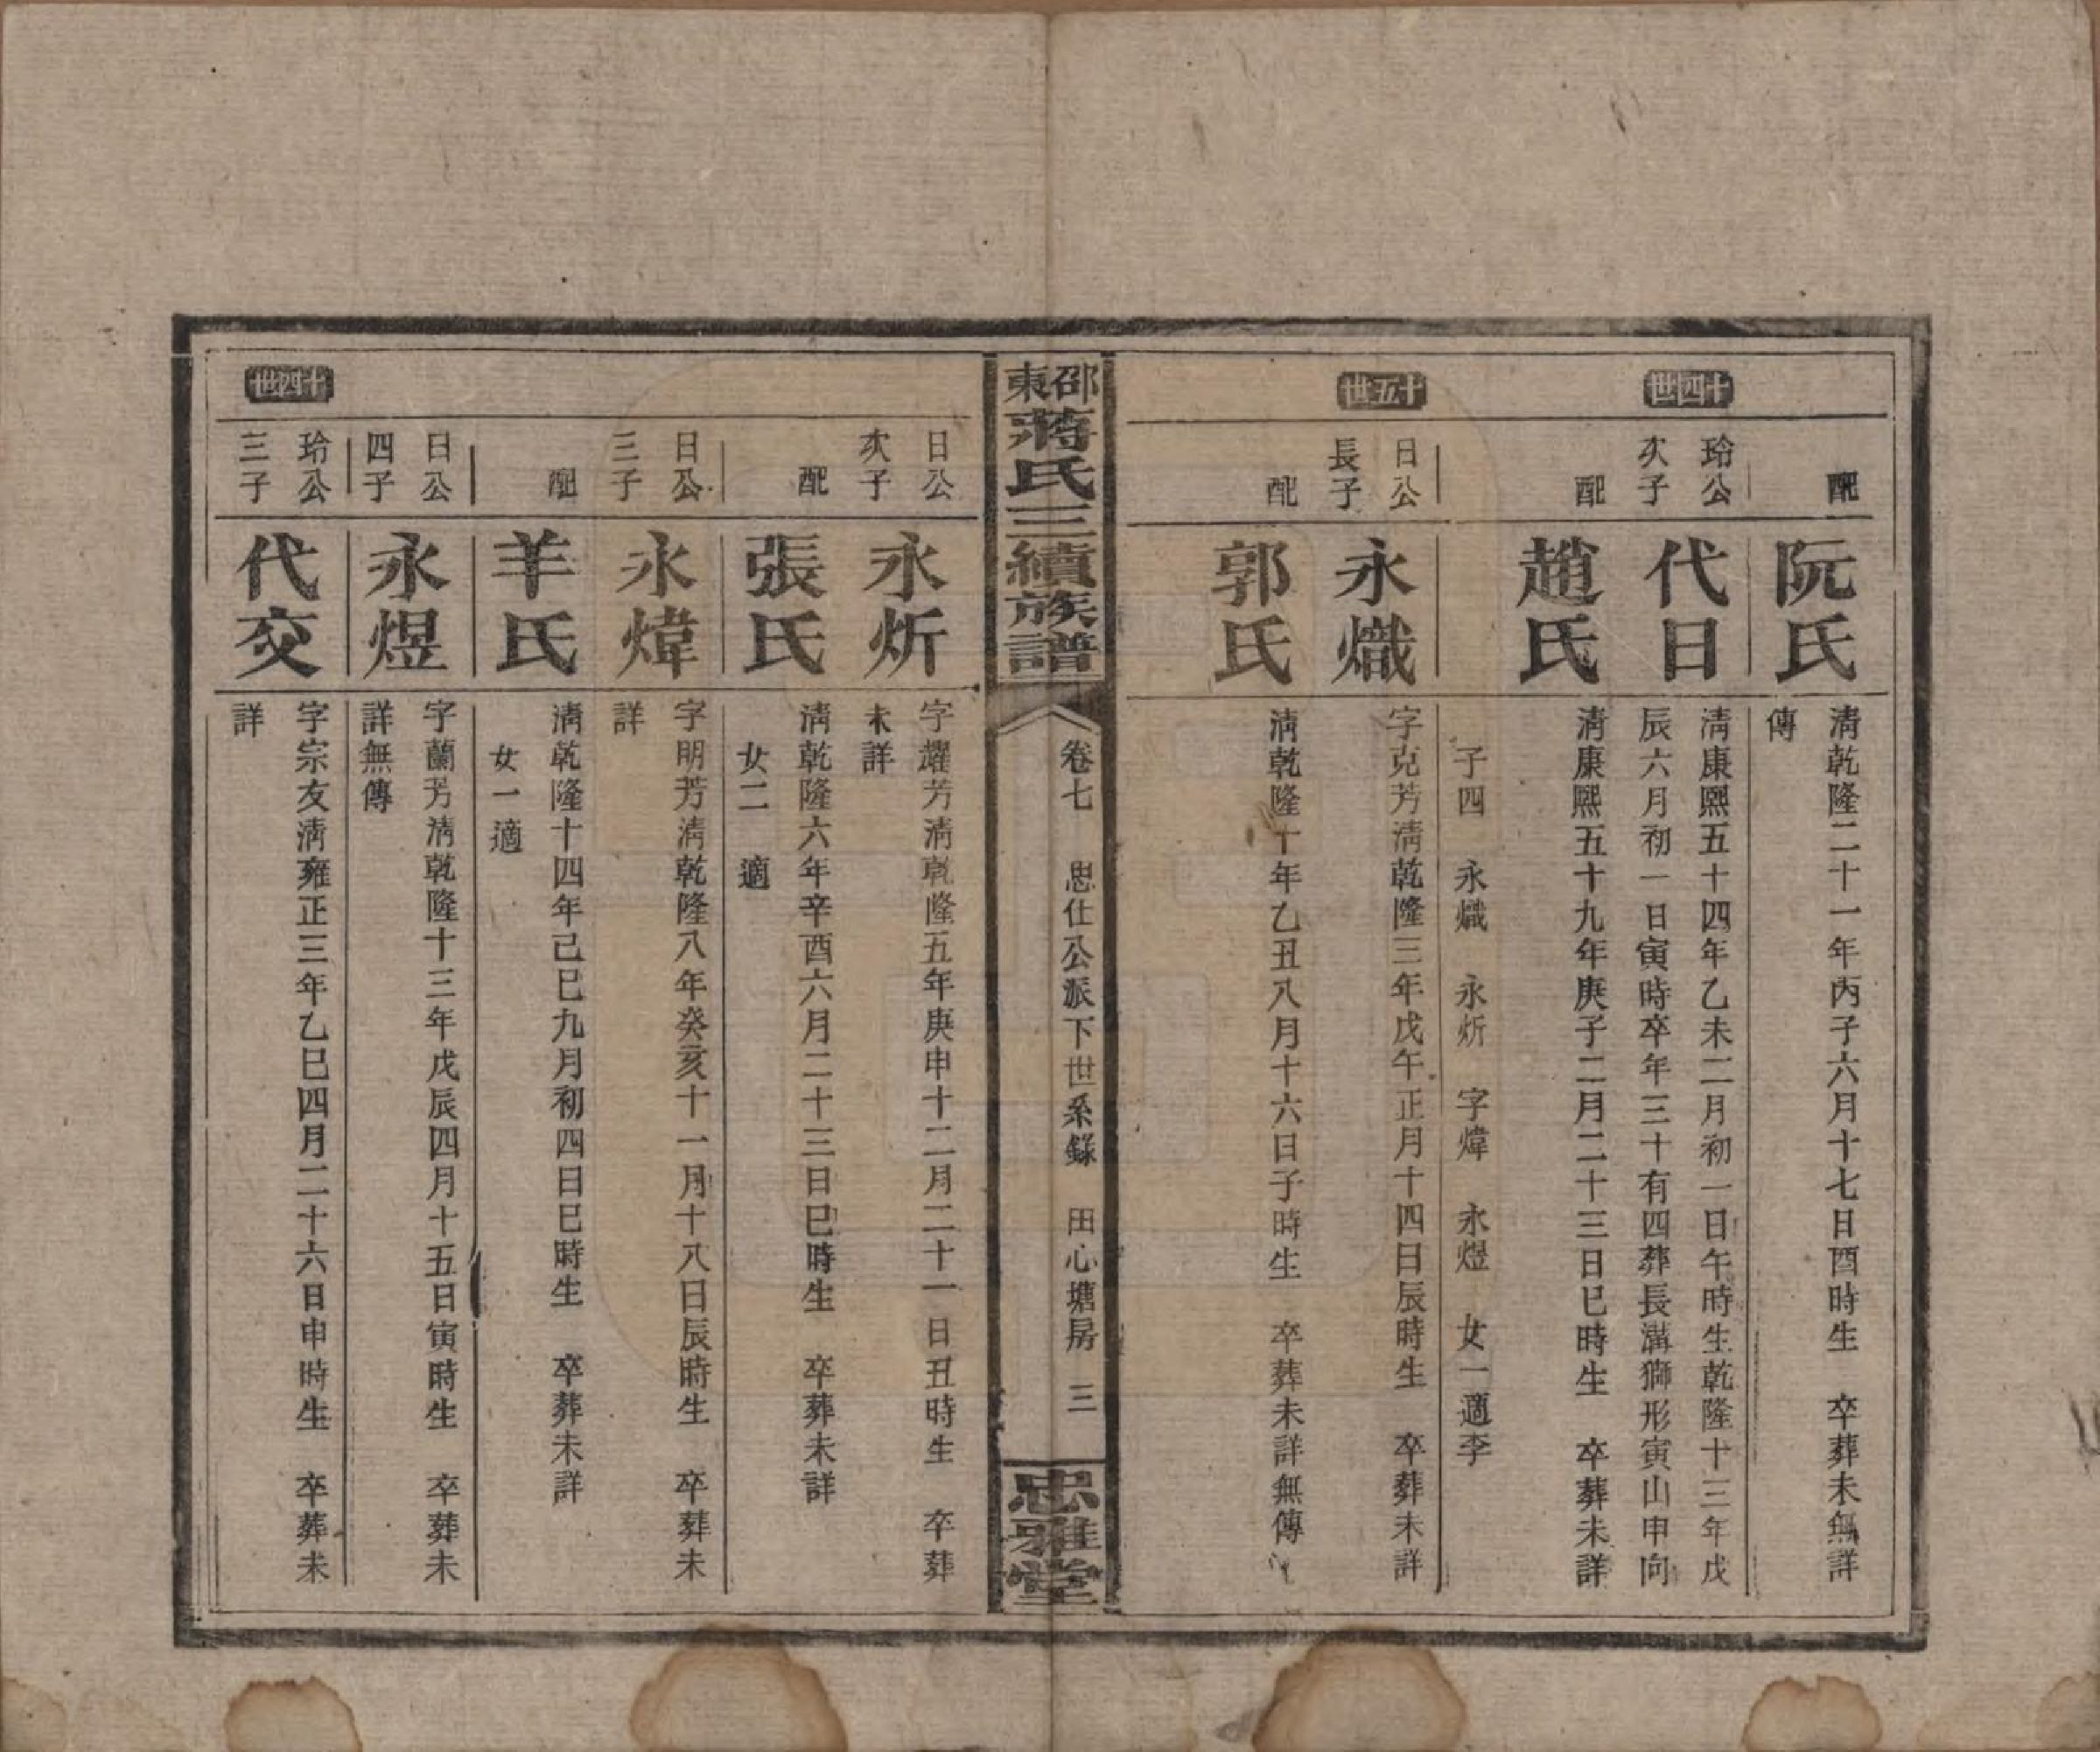 配
阮氏
清乾隆二十一年丙子六月十七日酉時生　卒葬未無詳
傳
十四世
玲公
次子
代日
清康熙五十四年乙未二月初一日午時生乾隆十三年戊
辰六月初一日寅時卒年三十有四葬長溝獅形寅山申向
配
趙氏
清康熙五十九年庚子二月二十三日巳時生　卒葬未詳
子四　永熾　永炘　字煒　永煜　女一適李
十五世
日公
長子
永熾
字克芳清乾隆三年戊午正月十四日辰時生　卒葬未詳
配
郭氏
清乾隆十年乙丑八月十六日子時生　卒葬未詳無傳
邵東蔣氏三續族譜
卷七　思仕公派下世系錄　田心塘房　三
忠雅堂
日公
次子
永炘
字耀芳清乾隆五年庚申十二月二十一日丑時生　卒葬
未詳
配
張氏
清乾隆六年辛酉六月二十三日巳時生　卒葬未詳
女二　適
日公
三子
永煒
字明芳清乾隆八年癸亥十一月十八日辰時生　卒葬未
詳
配
羊氏
清乾隆十四年己巳九月初四日巳時生　卒葬未詳
女一適
日公
四子
永煜
字蘭芳清乾隆十三年戊辰四月十五日寅時生　卒葬未
詳無傳
十四世
玲公
三子
代交
字宗友清雍正三年乙巳四月二十六日申時生　卒葬未
詳